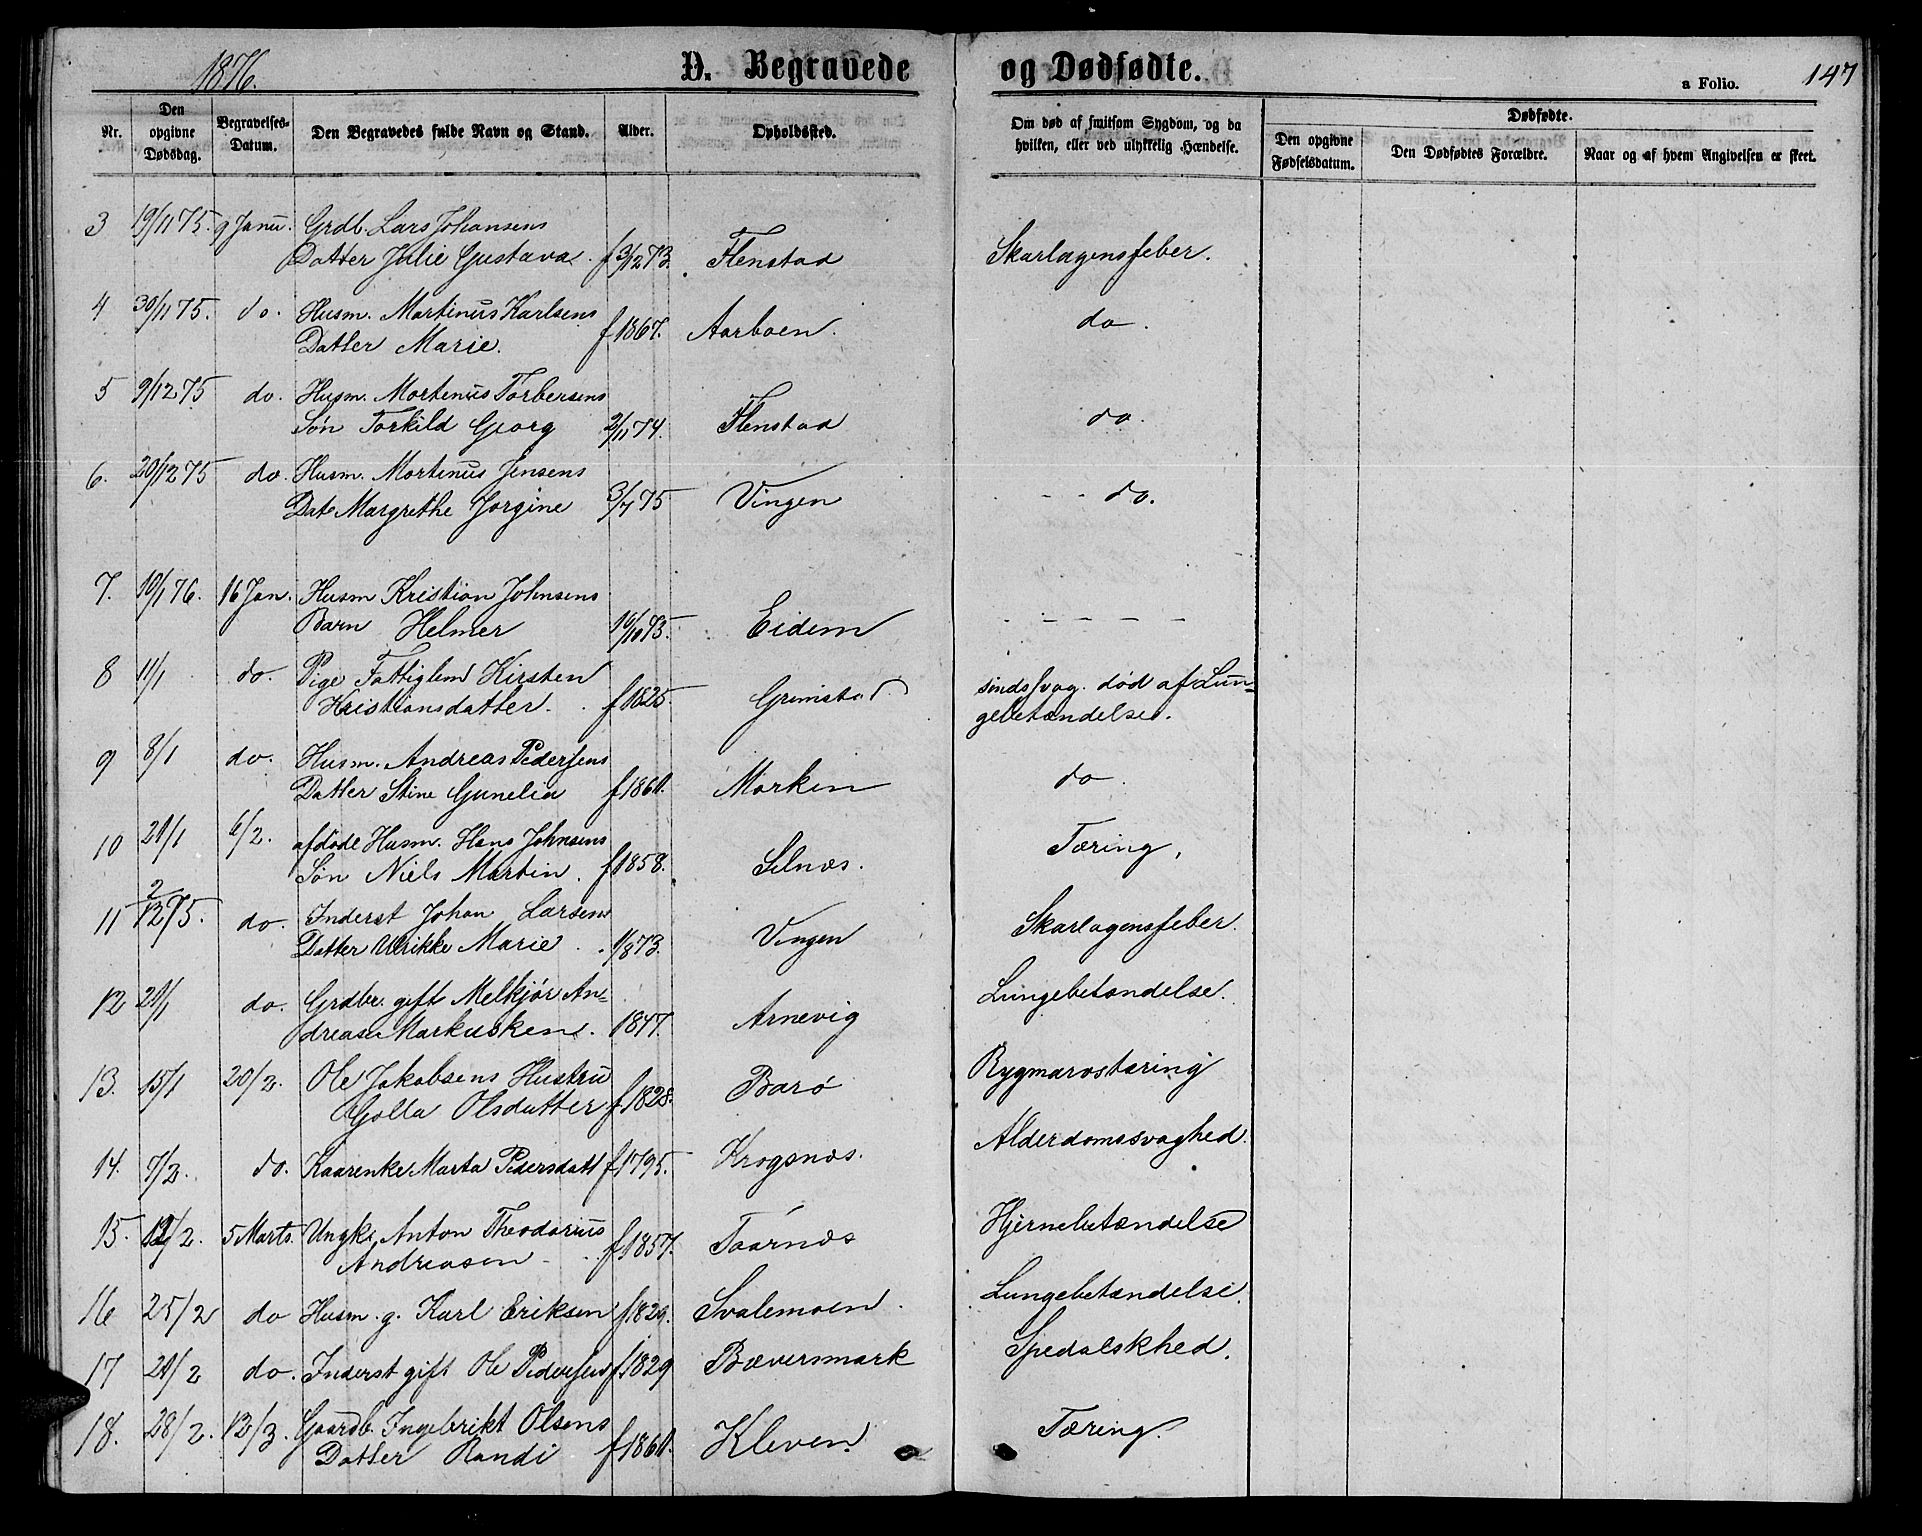 1876.
D. Begravede og Dødfødte.
a Folio. 147
Nr. Den opgivne Dødsdag. Begravelses-Datum. Den Begravedes fulde Navn og Stand. Alder. Opholdssted. Om død af smitsom Sygdom, og da hvilken, eller ved ulykkelig Hændelse. Dødfødte.
Den opgivne Fødselsdatum. Den Dødfødtes Forældre. Naar og af hvem Angivelsen er skeet.
3 19/11 75. 9 Janu. Grdb. Lars Johansens
Datter Julie Gustava. f 3/12 73. Flenstad Skarlagensfeber.
4 30/11 75. do. Husm. Martinus Karlsens
Datter Marie. f 1867. Aarboen. do.
5 9/12 75 do. Husm. Mortenus Torbersens
Søn Torkild Georg 2/11 74. Flenstad do.
6. 20/12 75 do. Husm. Mortenus Jensens
Dat. Margrethe Jorgine 3/7 75 Vingen - - do.
7. 10/1 76. 16 Jan. Husm Kristian Johnsens
Barn Helmer 16/10 75. Eidem - - - - -
8 11/1 do. Pige Fattiglem Kirsten
Kristiansdatter. f 1825. Grimstad. sindssvag. død af Lun=
gebetændelse.
9 8/1 do. Husm. Andreas Pedersens
Datter Stine Gunelia f 1860. Morken do.
10 21/1 6/2. afdøde Husm. Hans Johnsens
Søn Niels Martin. f 1858. Selnæs. Tæring,
11 2/12 75. do. Inderst Johan Larsens
Datter Ulrikke Marie. 1/8 73. Vingen Skarlagensfeber.
12 21/1 do. Grdbr. gift Melkjør An=
dreasen Markusken. 1847. Arnevig Lungebetændelse.
13. 15/1 20/2. Ole Jakobsens Hustru
Golla Olsdatter f 1828. Barø Rygmarvstæring
14. 7/2. do. Kaarenke Marta Pedersdatt f 1795. Krogsnæs. Alderdomssvaghed.
15. 12/2. 5 Marts. Ungk. Anton Theodorius
Andreasen - f 1857. Taarnæs Hjernebetændelse
16 25/2 do Husm. g. Karl Eriksen f 1829. Svalemoen. Lungebetændelse.
17 21/2 do. Inderst gift Ole Pedersen f 1829 Bævermark Spedalskhed.
18. 28/2. 12/3. Gaardb. Ingebrikt Olsens
Datter Randi f 1860. Kleven. Tæring.